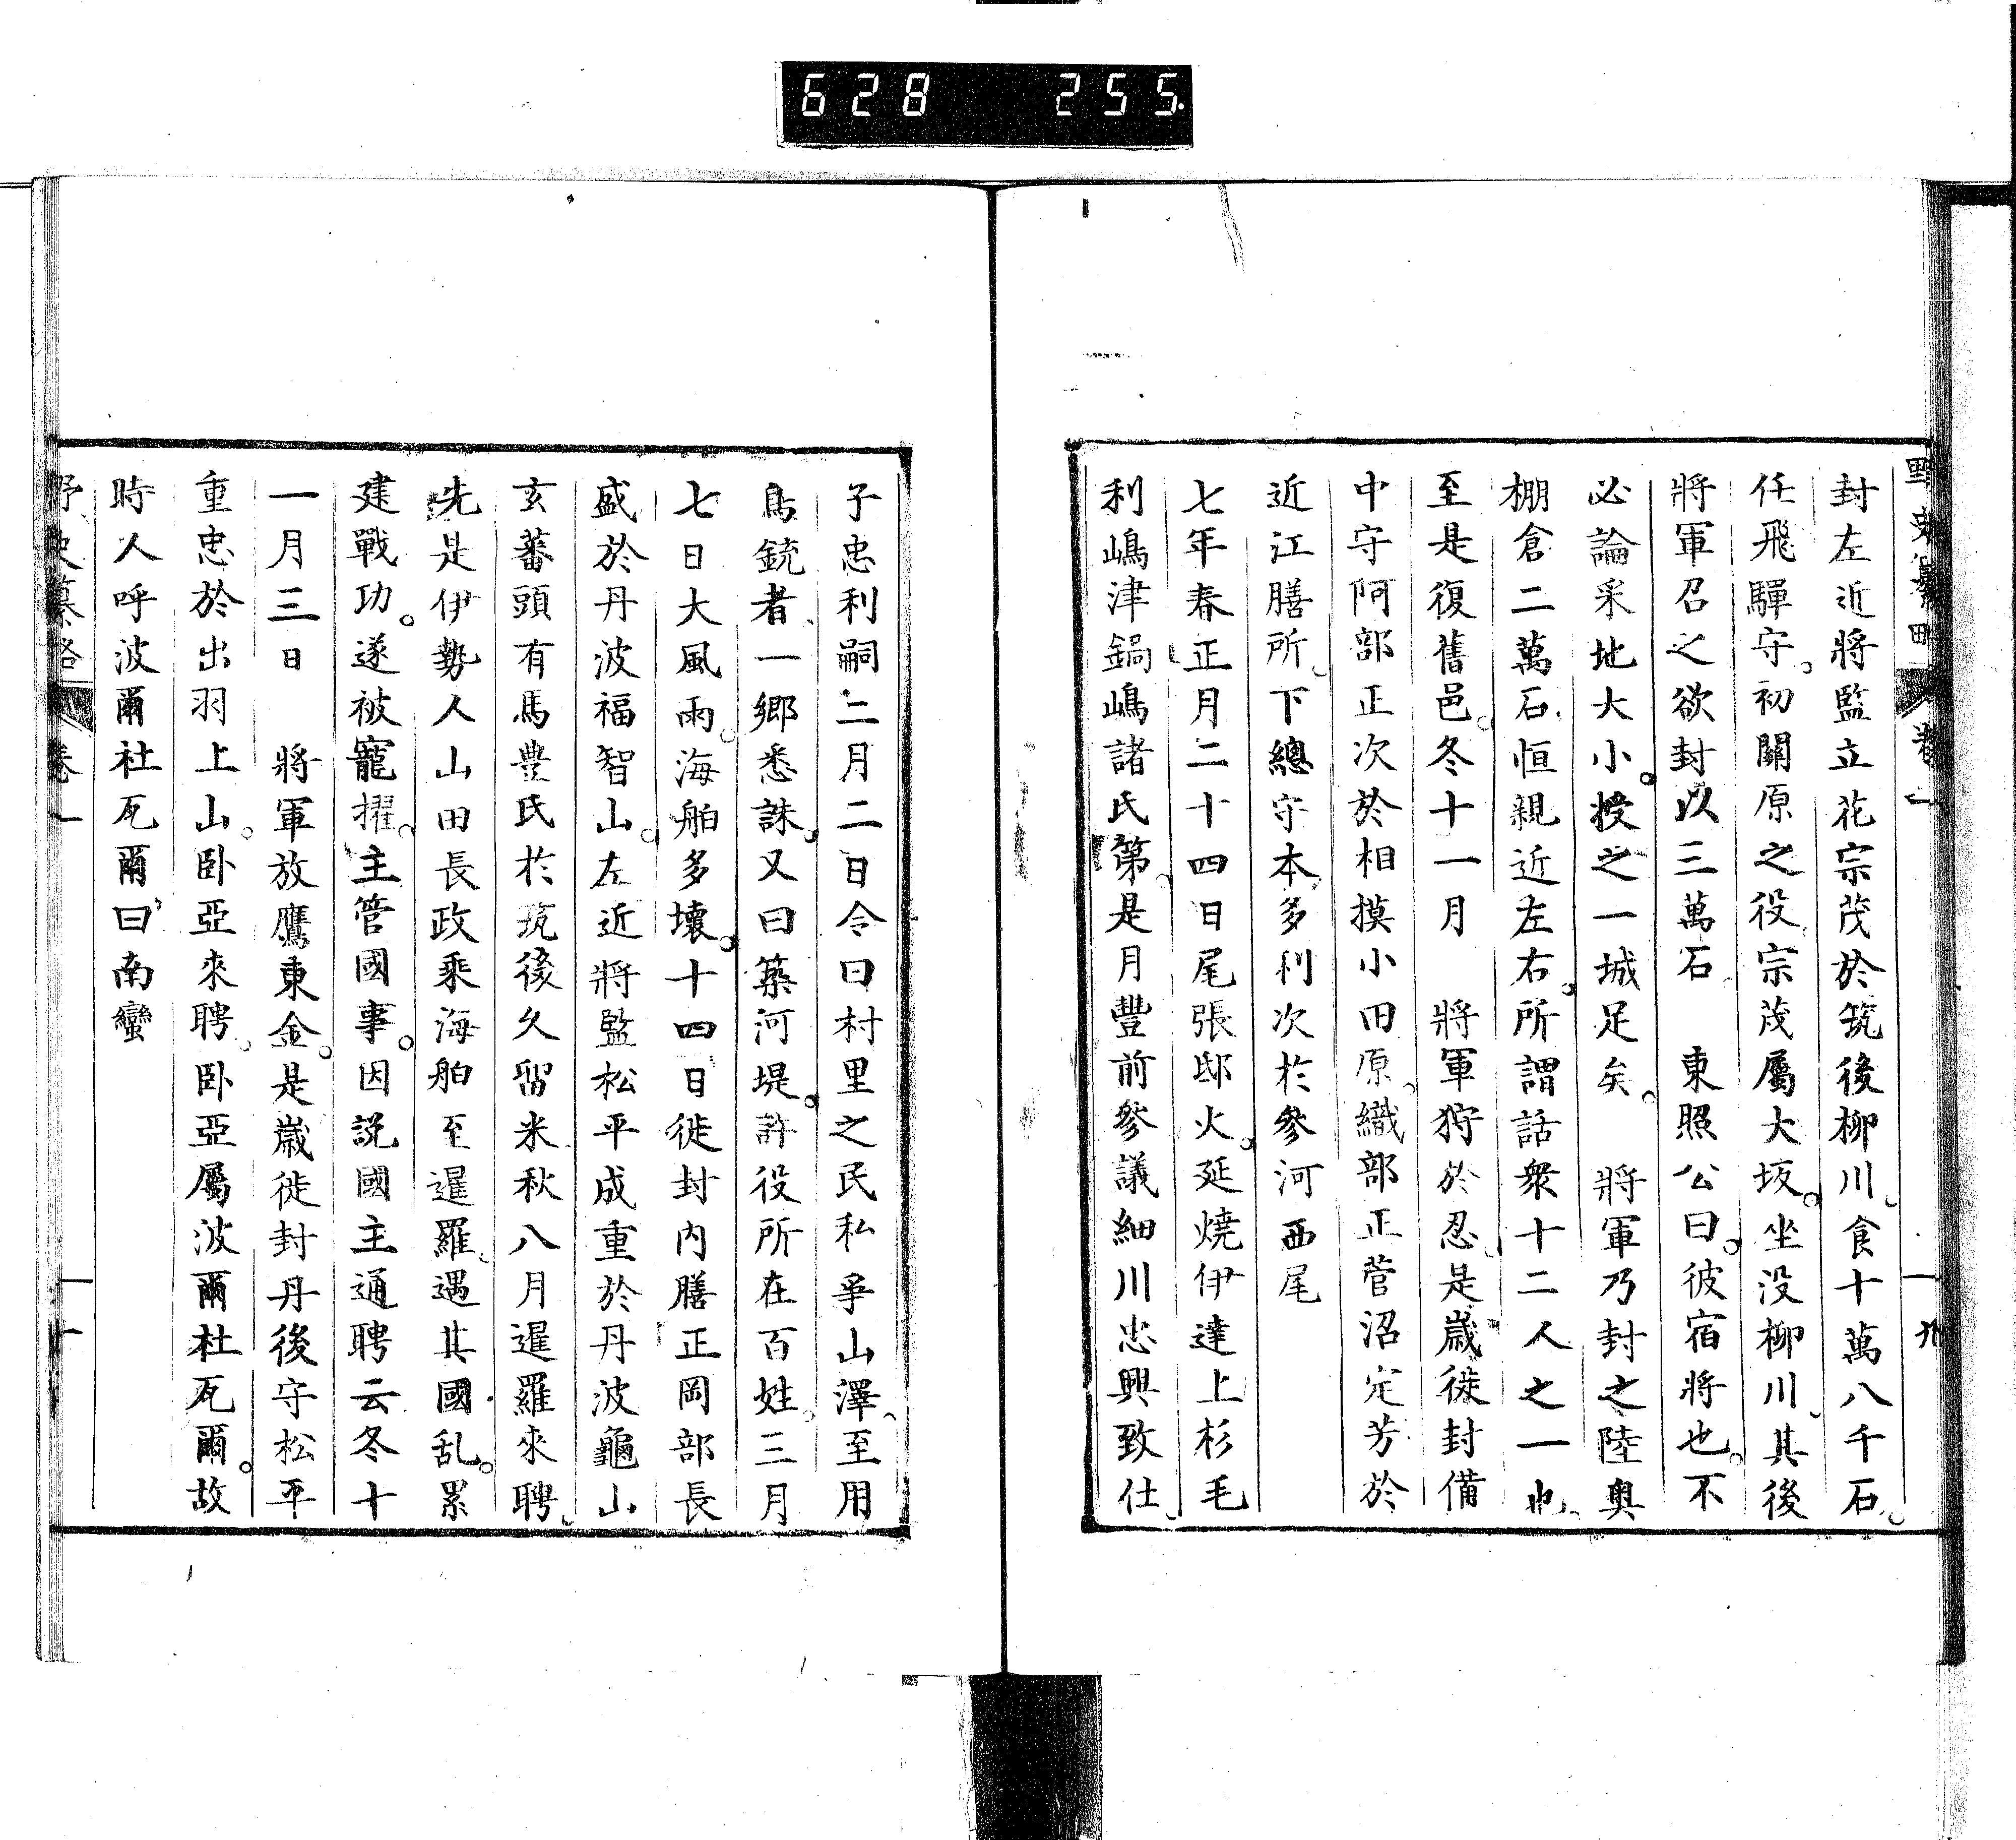 628 255
卷一
封左近將監立花宗茂於筑後柳川食十萬八千石
任飛驒守初關原之役宗茂屬大坂坐没柳川其後
將軍召之欲封以三萬石 東照公曰彼宿將也不
必論采地大小授之一城足矣 將軍乃封之陸奥
棚倉二萬石恒親近左右所謂話衆十二人之一也
至是復舊邑冬十一月 將軍狩於忍是歲徙封備
中守阿部正次於相摸小田原織部正菅沼定芳於
近江膳所下總守本多利次於參河西尾
七年春正月二十四日尾張邸火延燒伊達上杉毛
利嶋津鍋嶋諸氏第是月豐前參議細川忠興致仕
子忠利嗣二月二日令曰村里之民私爭山澤至用
鳥銃者一郷悉誅又曰築河堤許役所在百姓三月
七日大風雨海舶多壞十四日徙封内膳正岡部長
盛於丹波福智山左近將監松平成重於丹波龜山
玄蕃頭有馬豊氏於筑後久留米秋八月暹羅來聘
先是伊勢人山田長政乘海舶至暹羅遇其國乱累
建戰功遂被寵擢主管國事因説國主通聘云冬十
一月三日 將軍放鷹東金是歲徙封丹後守松平
重忠於出羽上山卧亞來聘卧亞屬波爾杜瓦爾故
時人呼波爾杜瓦爾曰南蠻
卷一